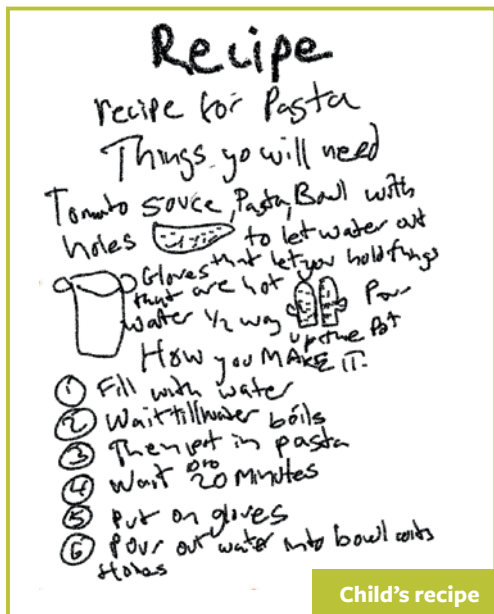 Recipe
recipe for Pasta
Things yo will need
Tomato souce, Pasta, Bowl with
holes to let water out
Gloves that let you hold things
that are hot
Pour
water 1/2 way up the Pot
How you MAKE IT.
① Fill with water
② Wait till water boils
③ Then put in pasta
④ Wait 20 Minutes
⑤ Put on gloves
⑥ Pour out water into bowl with
Holes
Child's recipe